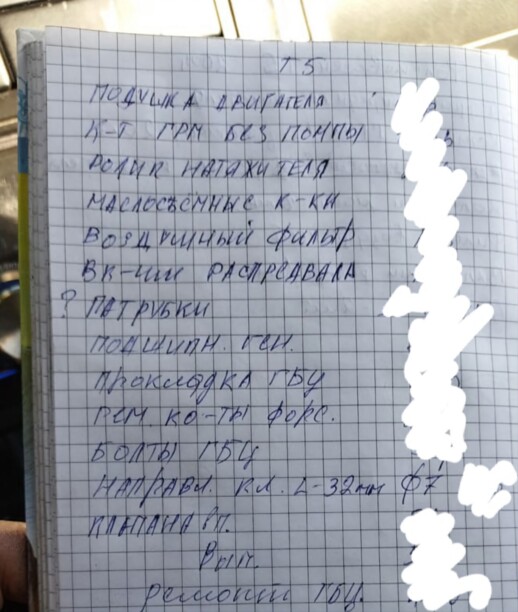 Т5
ПОДУШКА ДВИГАТЕЛЯ
К-Т ГРМ БЕЗ ПОМПЫ
РОЛИК НАТЯЖИТЕЛЯ
МАСЛОСЪЕМНЫЕ К-КИ
ВОЗДУШНЫЙ ФИЛЬТР
ВК-ШИ РАСПРЕДВАЛА
? ПАТРУБКИ
ПОДШИПН. ГЕН.
ПРОКЛАДКА ГБЦ
РЕМ. КО-ТЫ ФОРС.
БОЛТЫ ГБЦ
НАПРАВЛ. КЛ. L-32мм Ф7
КЛАПАНА ВП.
ВЫП.
РЕМОНТ ГБЦ.